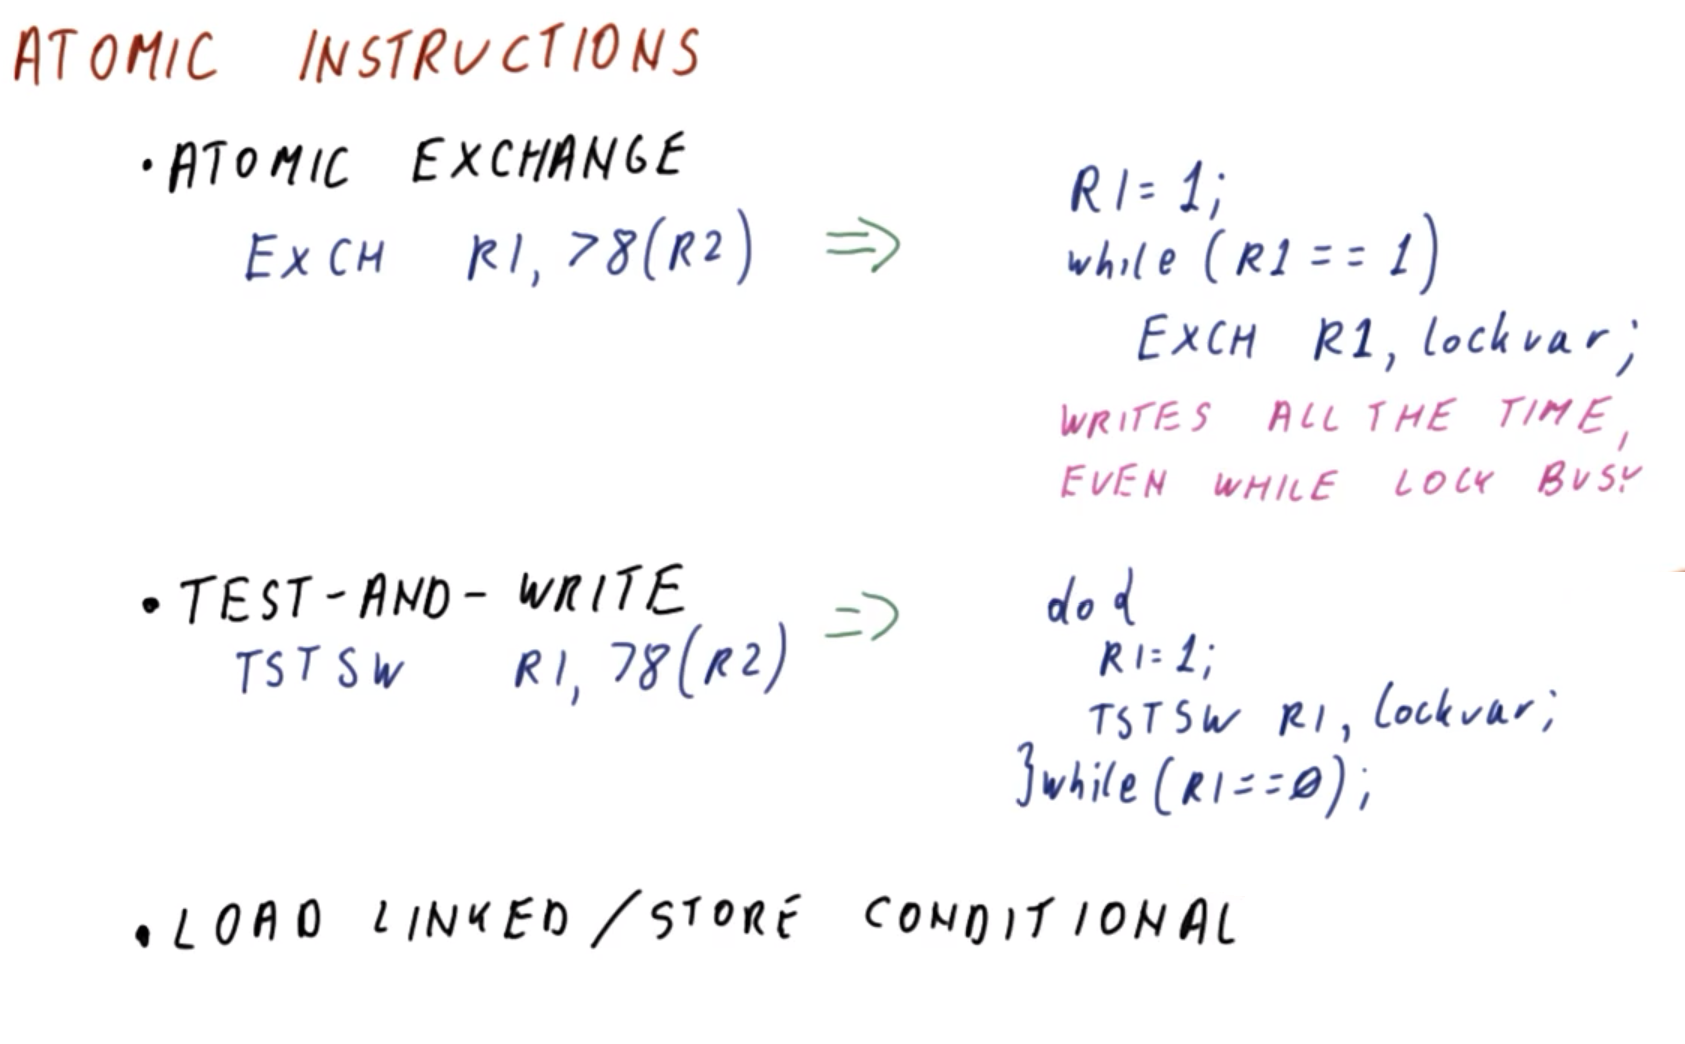 ATOMIC INSTRUCTIONS
• ATOMIC EXCHANGE
EXCH R1, 78(R2) ⇒
R1 = 1;
while (R1 == 1)
EXCH R1, lockvar;
WRITES ALL THE TIME,
EVEN WHILE LOCK BUSY
• TEST-AND-WRITE
TSTSW R1, 78(R2) ⇒
do {
R1 = 1;
TSTSW R1, lockvar;
} while (R1 == 0);
• LOAD LINKED/STORE CONDITIONAL